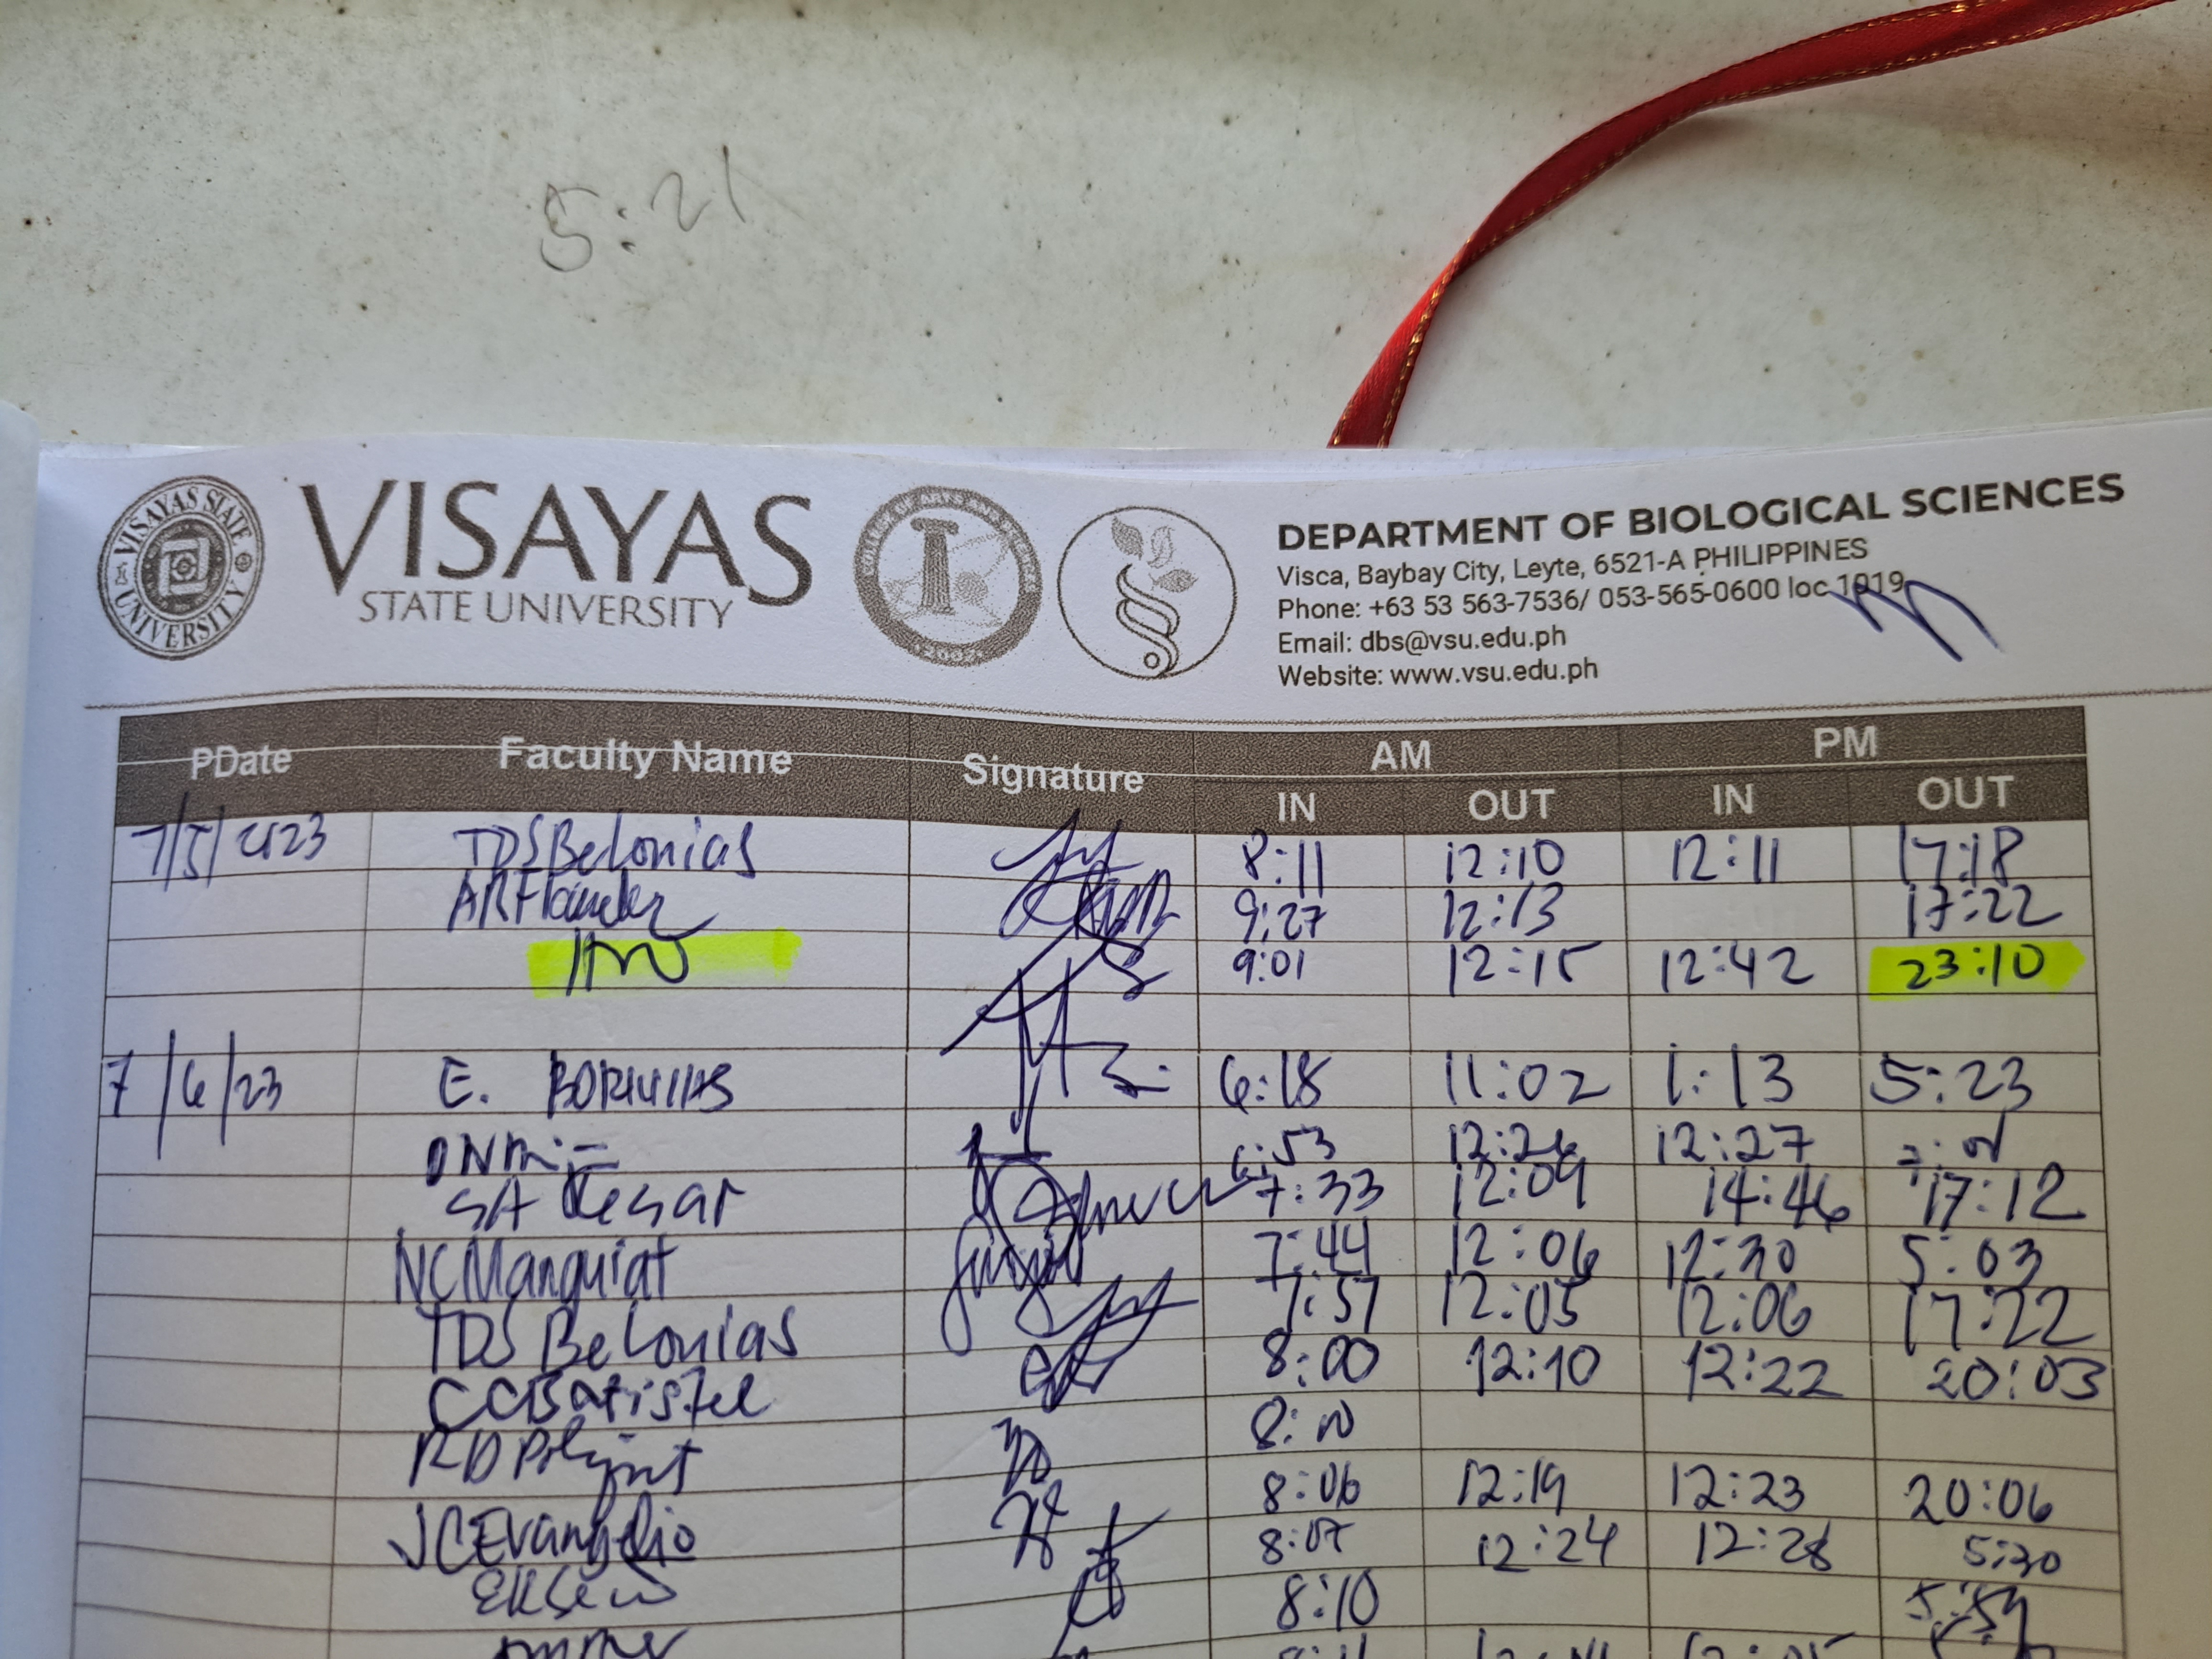 5:21
VISAYAS STATE UNIVERSITY
VISAYAS
STATE UNIVERSITY
COLLEGE OF ARTS AND SCIENCES
2002
DEPARTMENT OF BIOLOGICAL SCIENCES
Visca, Baybay City, Leyte, 6521-A PHILIPPINES
Phone: +63 53 563-7536/ 053-565-0600 loc 1019
Email: dbs@vsu.edu.ph
Website: www.vsu.edu.ph
PDate Faculty Name Signature AM PM
IN OUT IN OUT
7/5/2023 TDS Belonias 8:11 12:10 12:11 17:18
9:27 12:13 17:22
9:01 12:15 12:42 23:10
7/6/23 E. 6:18 11:02 1:13 5:23
6:53 12:26 12:27
SA Cesar 7:33 12:09 14:46 17:12
NCManquiat 7:44 12:06 12:30 5:03
TDS Belonias 7:57 12:05 12:06 17:22
CCBatistel 8:00 12:10 12:22 20:03
8:10
JCEvangelio 8:06 12:19 12:23 20:06
8:07 12:24 12:28 5:30
8:10